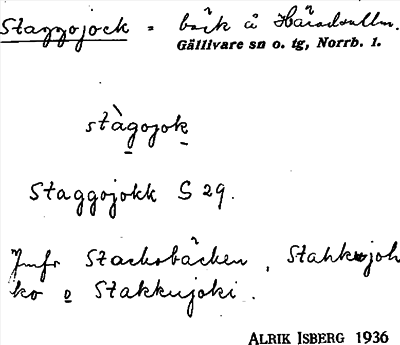 Staggojock = bäck å Häradsallm.
Gällivare sn o. tg, Norrb. l.
stàgojok
Staggojokk S 29.
Jmfr Stacksbäcken, Stahkujoh
ko o Stakkujoki.
ALRIK ISBERG 1936